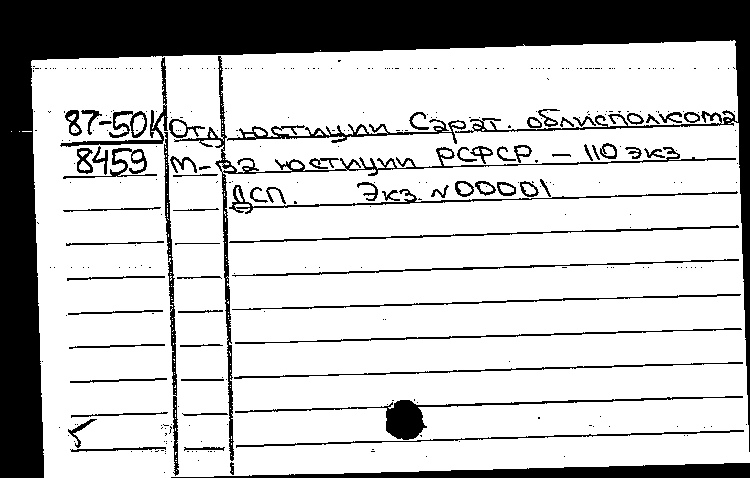 87-50К Отд. юстиции Сарат. облисполкома
8459 м-ва юстиции РСФСР. – 110 экз.
ДСП. Экз. N00001